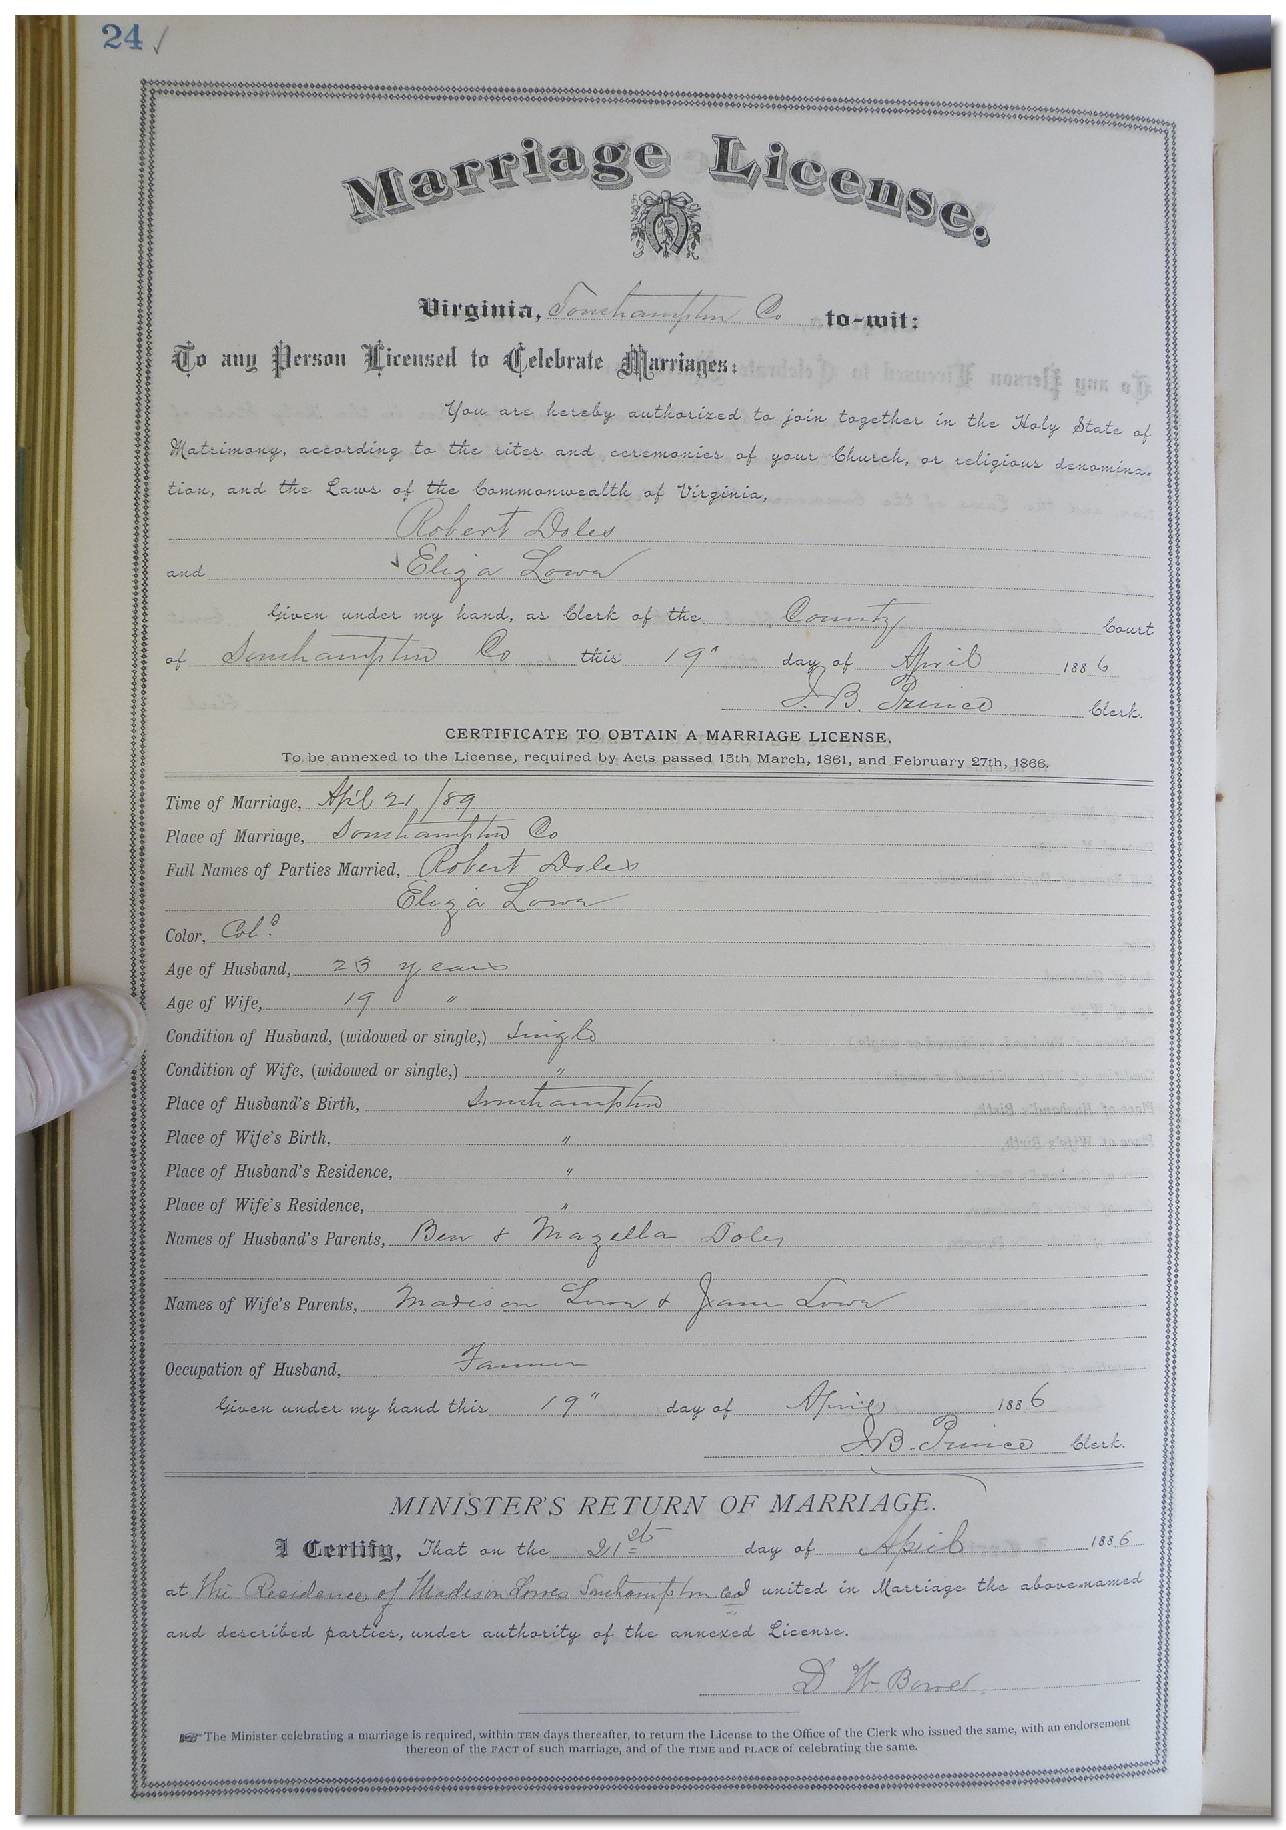 24 ✓
Marriage License.
Virginia, Southampton Co to-wit:
To any Person Licensed to Celebrate Marriages:
You are hereby authorized to join together in the Holy State of
Matrimony, according to the rites and ceremonies of your Church, or religious denomina-
tion, and the Laws of the Commonwealth of Virginia,
Robert Doles
and ✓ Eliza Lowe
Given under my hand, as Clerk of the County Court
of Southampton Co this 19" day of April 1886
J. B. Prince Clerk.
CERTIFICATE TO OBTAIN A MARRIAGE LICENSE,
To be annexed to the License, required by Acts passed 15th March, 1861, and February 27th, 1866.
Time of Marriage, Apil 21 /89
Place of Marriage, Southampton Co
Full Names of Parties Married, Robert Doles
Eliza Lowe
Color, Cold.
Age of Husband, 23 years
Age of Wife, 19 "
Condition of Husband, (widowed or single,) Single
Condition of Wife, (widowed or single,) "
Place of Husband's Birth, Southampton
Place of Wife's Birth, "
Place of Husband's Residence, "
Place of Wife's Residence, "
Names of Husband's Parents, Ben & Mazella Doles
Names of Wife's Parents, Madison Lowe & Jane Lowe
Occupation of Husband, Farmer
Given under my hand this 19" day of April 1886
J. B. Prince Clerk.
MINISTER'S RETURN OF MARRIAGE.
I Certify, That on the 21st day of April 1886
at The Residence of Madison Lowes Southampton Co I united in Marriage the above-named
and described parties, under authority of the annexed License.
D W
☞ The Minister celebrating a marriage is required, within TEN days thereafter, to return the License to the Office of the Clerk who issued the same, with an endorsement
thereon of the FACT of such marriage, and of the TIME and PLACE of celebrating the same.